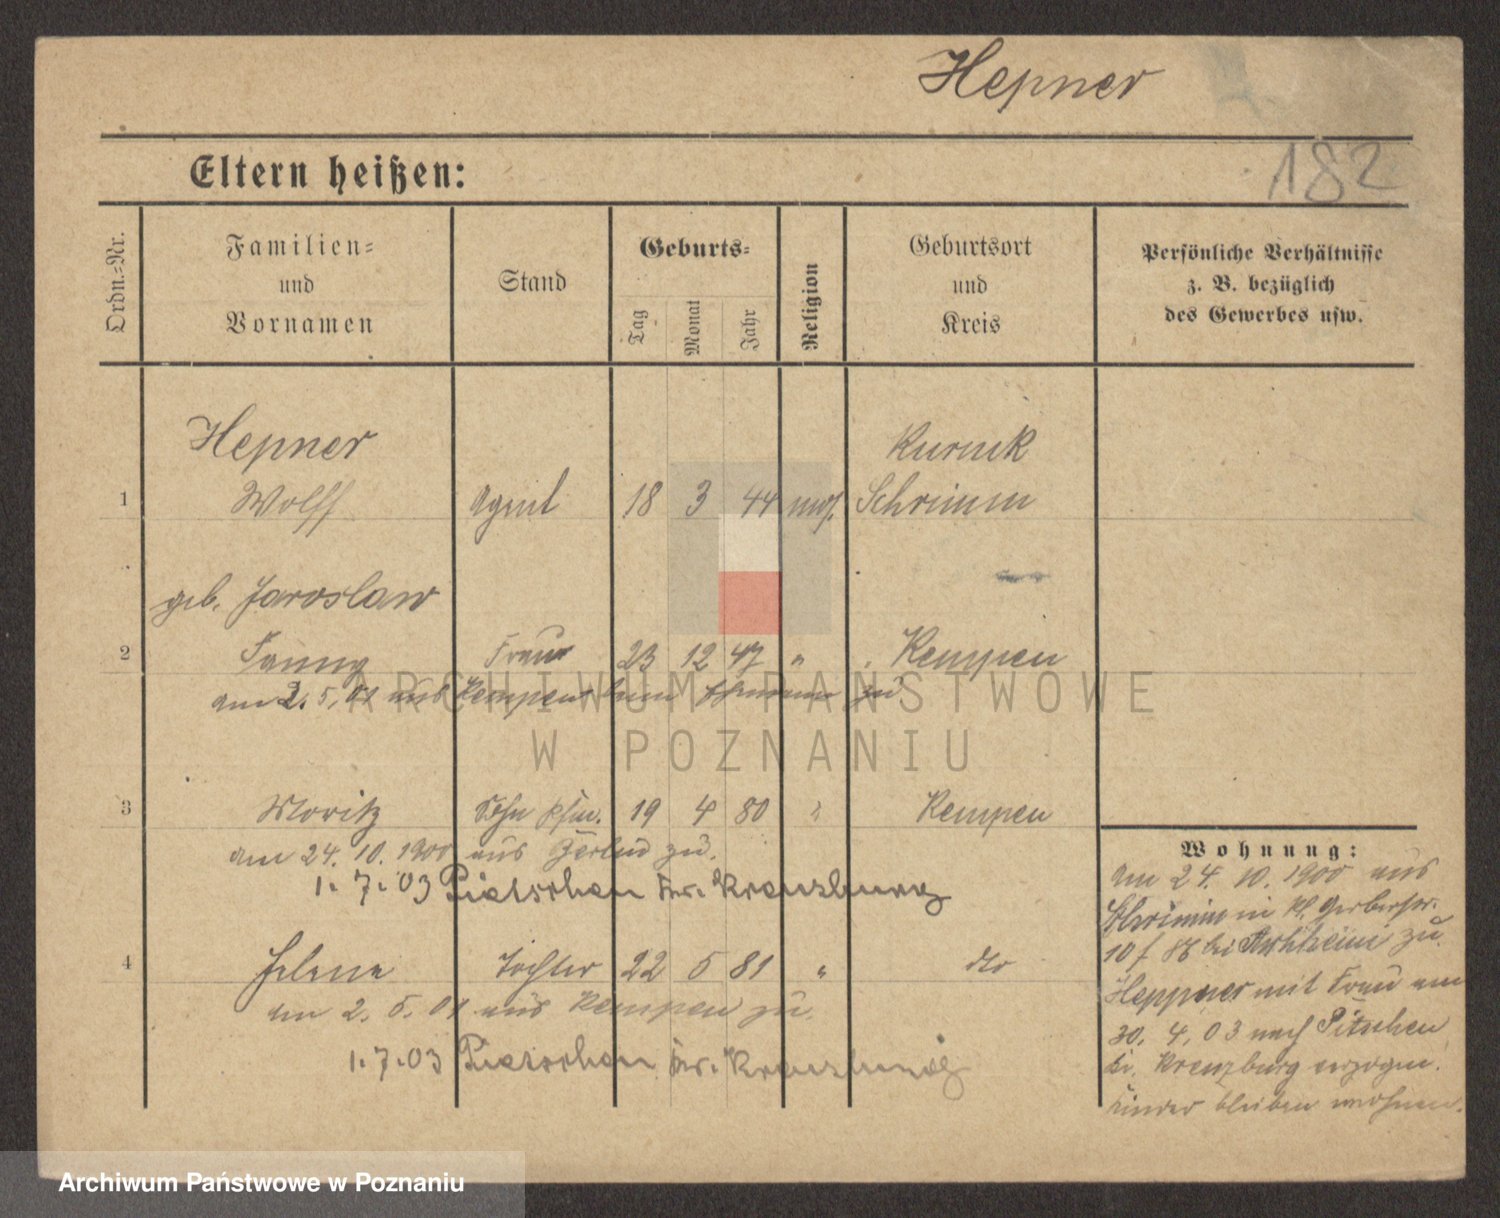 Hepner
182
Eltern heißen:
Ordn.=Nr.
Familien=
und
Vornamen
Stand
Geburts=
Tag
Monat
Jahr
Religion
Geburtsort
und
Kreis
Persönliche Verhältnisse
z. B. bezüglich
des Gewerbes usw.
Hepner Kurnik
1 Wolff Agent 18 3 44 mos. Schrimm
geb. Jaroslaw
2 Fanny Frau 23 12 47 " Kempen
am 2. 5. 01 aus Kempen zu
3 Moritz Sohn 19 4 80 " Kempen
am 24. 10. 1900 aus zu.
1. 7. 03 Pietschen Kr. Kreuzburg
4 Helene Tochter 22 5 81 " dto
am 2. 5. 01 aus Kempen zu.
1. 7. 03 Pietschen Kr. Kreuzburg
Wohnung:
am 24. 10. 1900 aus
Schrimm in Kl. Gerberstr.
10 bei zu.
Heppner mit Frau am
30. 4. 03 nach Pitschen
Kr. Kreuzburg verzogen.
Kinder bleiben wohnen.
ARCHIWUM PAŃSTWOWE
W POZNANIU
Archiwum Państwowe w Poznaniu